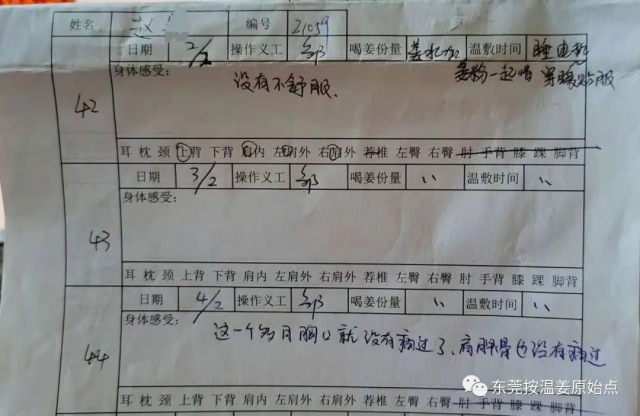 姓名 赵 编号 21059
日期 2/2 操作义工 邹 喝姜份量 姜水加 温敷时间 睡电
姜粉一起喝 穿暖衣服
42 身体感受:
没有不舒服.
耳 枕 颈 上背 下背 肩内 左肩外 右肩外 荐椎 左臀 右臀 肘 手背 膝 踝 脚背
日期 3/2 操作义工 邹 喝姜份量 〃 温敷时间 〃
43 身体感受:
耳 枕 颈 上背 下背 肩内 左肩外 右肩外 荐椎 左臀 右臀 肘 手背 膝 踝 脚背
日期 4/2 操作义工 邹 喝姜份量 〃 温敷时间 〃
44 身体感受:
这一个多月胸口就没有痛过了、肩胛骨也没有痛过
耳 枕 颈 上背 下背 肩内 左肩外 右肩外 荐椎 左臀 右臀 肘 手背 膝 踝 脚背
东莞按温姜原始点